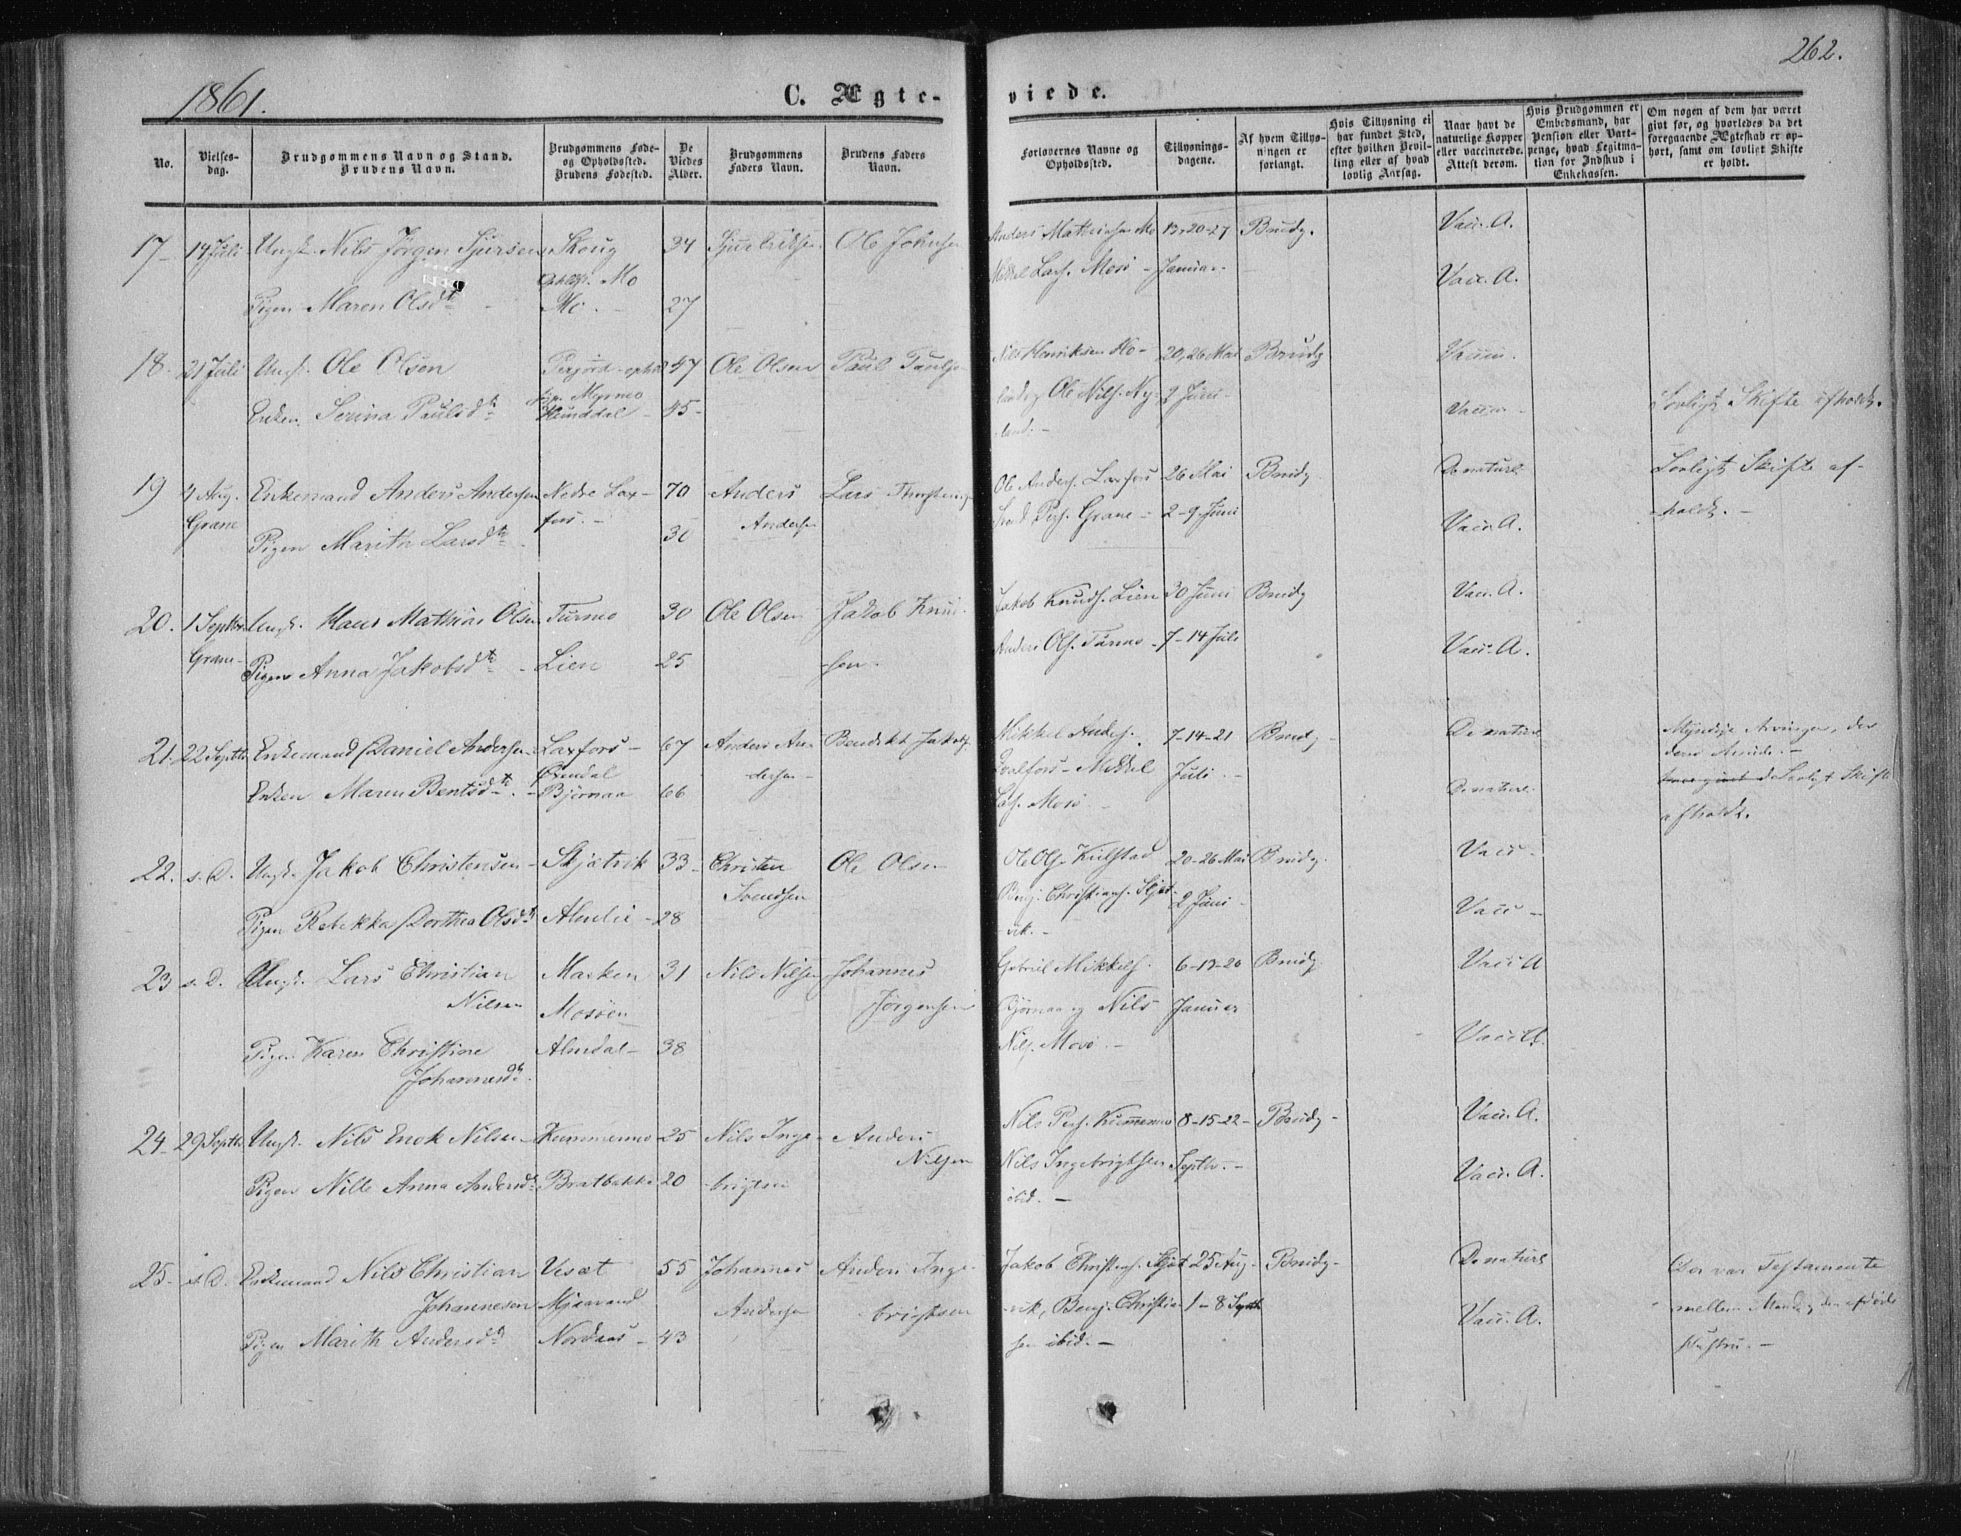 1861.
C. Ægte-
viede.
262.
No.
Vielses-
dag.
Brudgommens Navn og Stand.
Brudens Navn.
Brudgommens Føde-
og Opholdssted.
Brudens Fødested.
De
Viedes
Alder.
Brudgommens
Faders Navn.
Brudens Faders
Navn.
Forlovernes Navne og
Opholdssted.
Tillysnings-
dagene.
Af hvem Tillys-
ningen er
forlangt.
Hvis Tillysning ei
har fundet Sted,
efter hvilken Bevil-
ling eller af hvad
lovlig Aarsag.
Naar havt de
naturlige Kopper
eller vaccinerede.
Attest derom.
Hvis Brudgommen er
Embedsmand, har
Pension eller Vart-
penge, hvad Legitima-
tion for Indskud i
Enkekassen.
Om nogen af dem har været
givt før, og hvorledes da det
foregaaende Ægteskab er op-
hørt, samt om lovligt Skifte
er holdt.
17 14 Juli Ungk. Nils Jørgen Sjursen Skoug 34 Ole Johnsen
Anders Mathisen Mo 13-20-27 Brudg. Vacc. A.
Opholdst. Mo
Mikkel Larss. Mosö Januar Vacc. A.
Pigen Maren Olsdtr Mo 27
18. 21 Juli Ungk. Ole Olsen 47 Ole Olsen Paul Paulsen
Nils Henriksen Ho- 20, 26 Mai Brudg Vaccin.
Enken Serina Paulsdtr 45
land og Ole Nils. Ny- 2 Juni Vaccin Lovligt Skifte afholdt.
land.
19 4 Aug. Enkemand Anders Andersen Nedre Lax- 70 Anders Lars
Ole Anders. Laxfors 26 Mai Brudg De naturl. Lovligt Skifte af-
Grane fors. Andersen
Pers. Grane 2-9 Juni Vacc. A. holdt.
Pigen Marith Larsdtr 30
20. 1 Septbr Ungk. Hans Mathias Olsen Turmo 30 Ole Olsen Jakob Knud-
Jakob Knuds. Lien 30 Juni Brudg Vacc. A.
Grane Pigen Anna Jakobsdtr Lien 25 sen
Anders Ols. Turmo 7-14 Juli Vacc. A.
21. 22 Septbr Enkemand Daniel Andersen Laxfors 67 Anders An- Bendikt Jakobs.
Mikkel Anders. 7-14-21 Brudg De naturl Myndige Arvinger, der
dersen
Enken Maren Bentsdtr. Bjørnaa 66
Mikkel Juli De naturl. Lovligt Skifte
Mosö afholdt.
22. s. D. Ungk. Jakob Christensen Skjøtvik 33 Christen Ole Olsen
Ole Ols. Kulstad 20-26 Mai Brudg. Vacc.
Svendsen
Benj. Christians. Skjøt- 2 Juni Vacc
Pigen Rebekka Dorthea Olsdtr Almlie 28
vik.
23 s. D. Ungk. Lars Christian Marken 31 Nils Nilsen Johannes
Gabriel Mikkels. 6-13-20 Brudg Vacc A
Nilsen Mosöen Jørgensen
Bjørnaa og Nils Januar
Pigen Karen Christine Almdal 38
Nils. Mosö. Vacc A.
Johannesdtr.
24 29 Septbr Ungk. Nils Enok Nilsen Kummermo 25 Nils Inge- Anders
Nils Pers. Kummermo 8-15-22 Brudg Vacc. A.
Nilsen
Pigen Nille Anna Andersdtr Bratbakke 20 brigtsen
Nils Ingebrigtsen Septbr. Vacc. A.
ibid.
25 s. D. Enkemand Nils Christian Vesæt 55 Johannes Anders Inge-
Jakob Christens. Skjøt 25 Aug Brudg De naturl Der var Testamente
Johannesen Mjaavand Andersen brigtsen
vik, Benj. Christian- 1-8 Septb Vacc. A. mellem Mand og den afdøde
Pigen Marith Andersdtr Nordaas 43
sen ibid. Hustru.